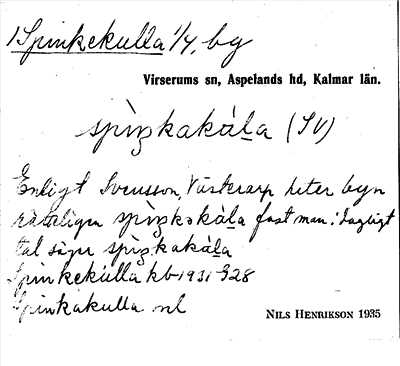 1 Spinkekulla 1/4, by
Virserums sn, Aspelands hd, Kalmar län.
spìŋkakál̲a (SV)
Enligt Svensson, Västerarp heter byn
rätteligen spìŋkakàl̲a fast man i dagligt
tal säger spìŋkakàl̲a
Spinkekulla kb 1931 328
Spinkakulla ml
NILS HENRIKSON 1935